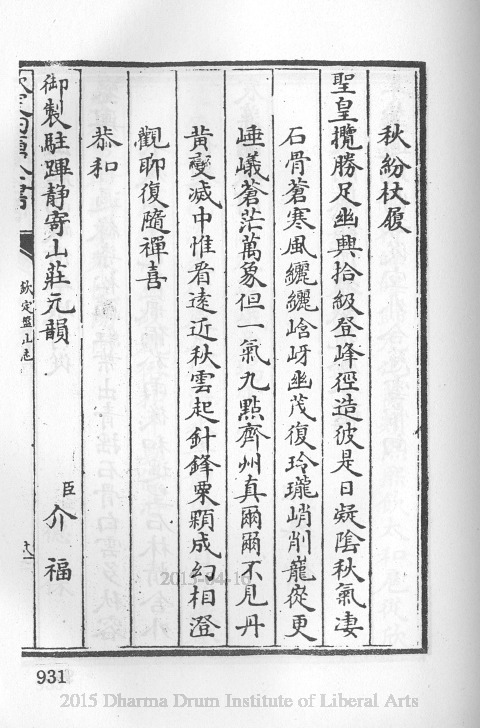 秋紛杖履
聖皇攬勝足幽興拾級登峰徑造彼是日凝陰秋氣凄
石骨蒼寒風纚纚峆岈幽茂復玲瓏峭削巃嵸更
崜嶬蒼茫萬象但一氣九點齊州真爾爾不見丹
黃變滅中惟看遠近秋雲起針鋒粟顆成幻相澄
觀聊復隨禪喜
恭和
御製駐蹕静寄山莊元韻
臣 介福
欽定盤山志
2015-04-10
931
2015 Dharma Drum Institute of Liberal Arts